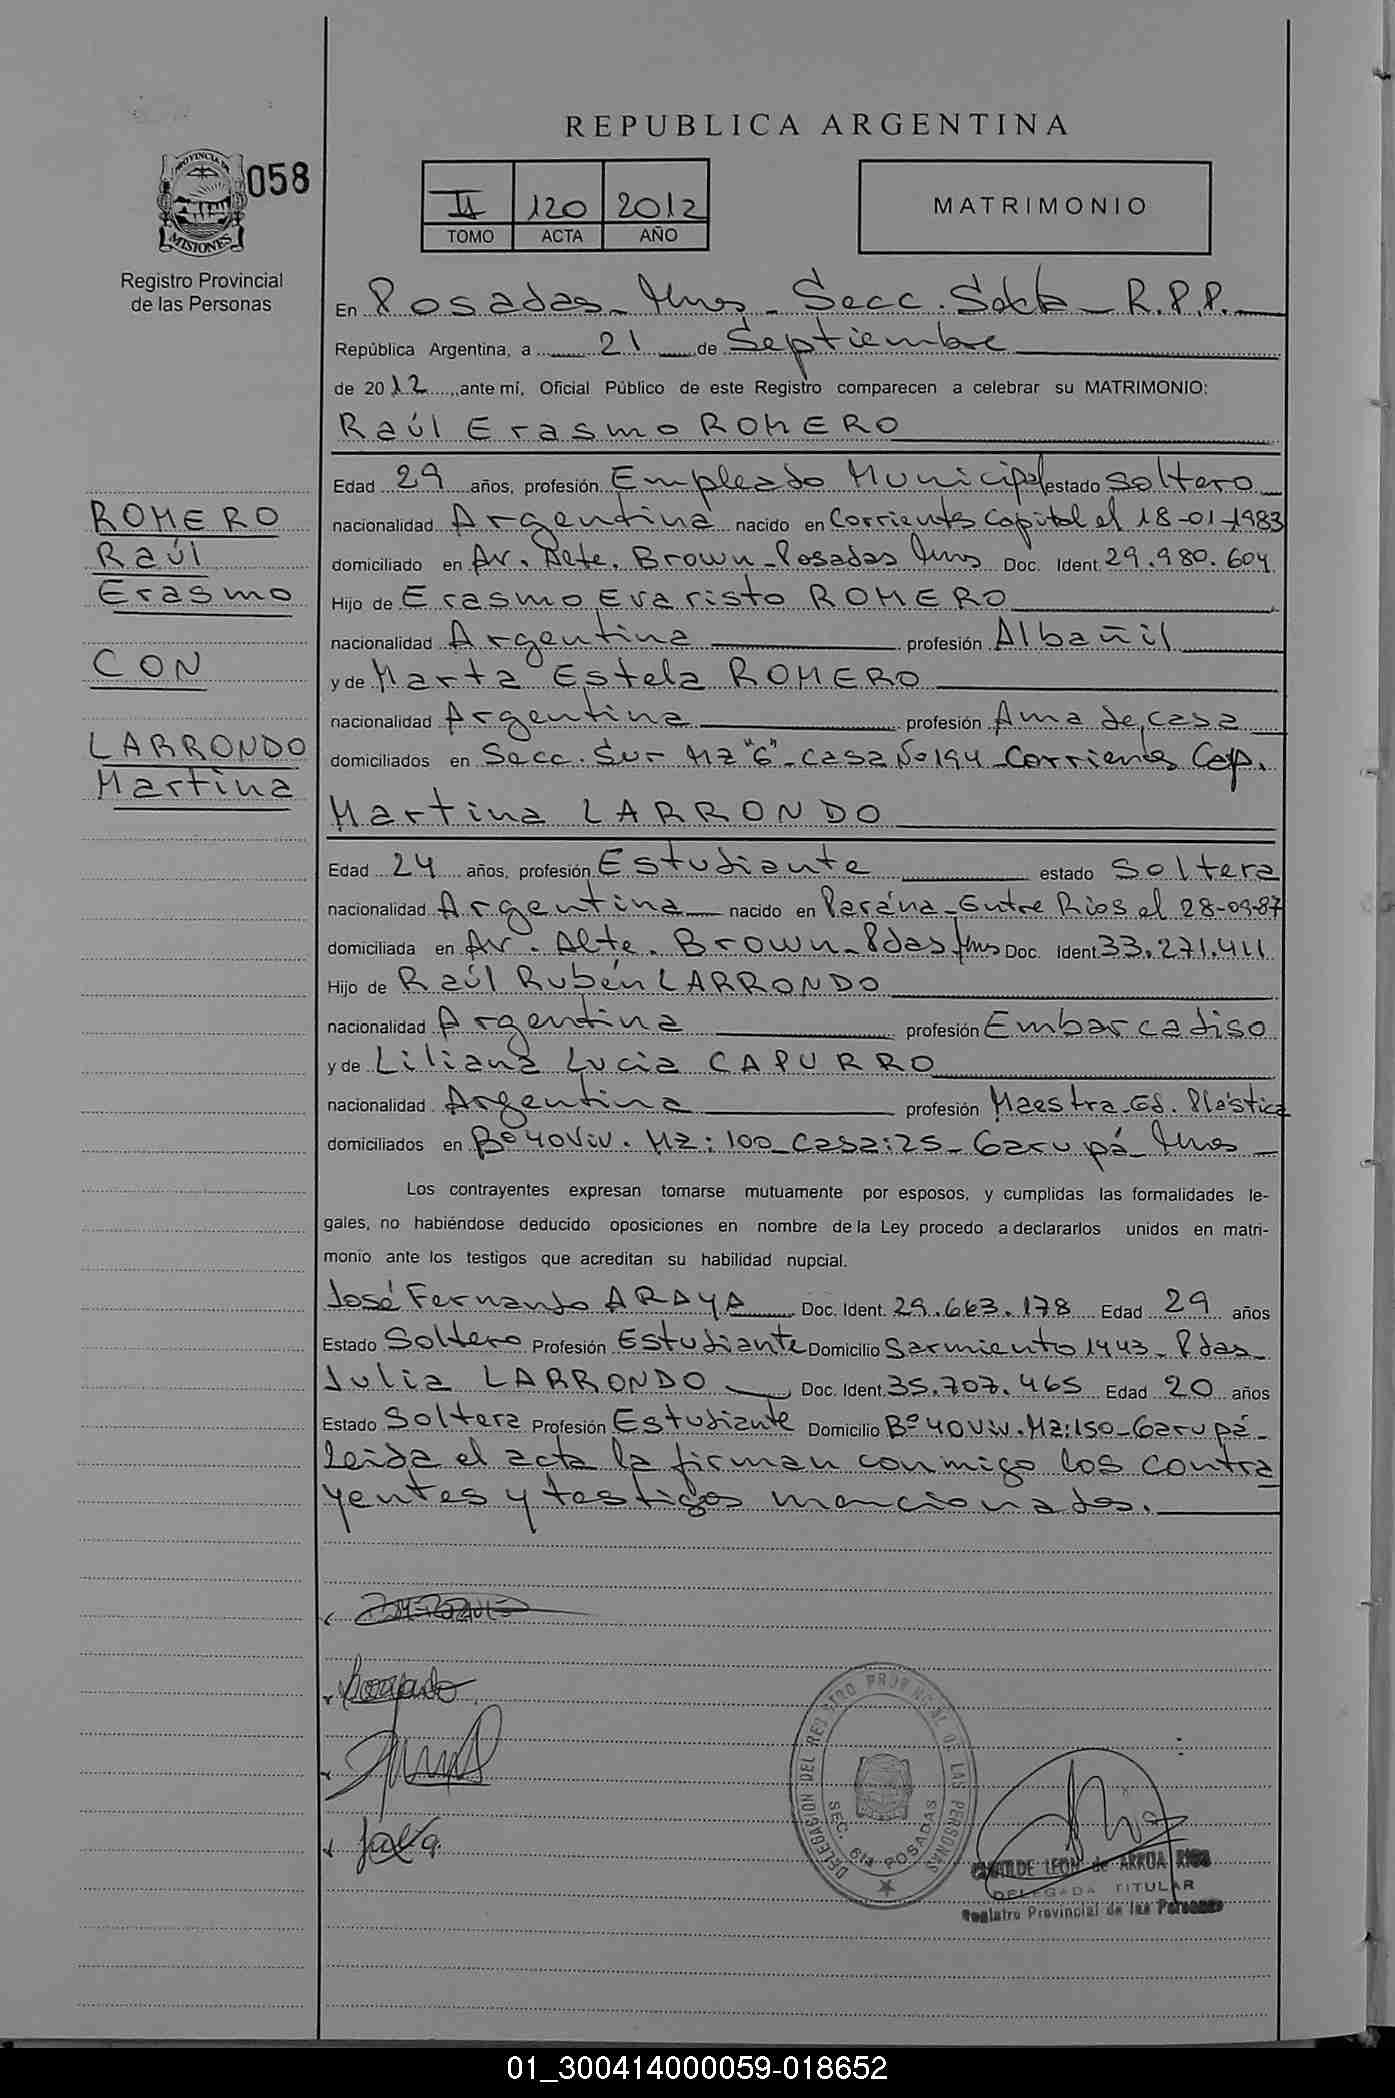 REPUBLICA ARGENTINA
PROVINCIA DE
MISIONES
058
Registro Provincial
de las Personas
II 120 2012
TOMO ACTA AÑO
MATRIMONIO
En Posadas - Mnes - Secc. Sexta - R.P.P.
República Argentina, a 21 de Septiembre
de 2012, ante mí, Oficial Público de este Registro comparecen a celebrar su MATRIMONIO:
Raúl Erasmo ROMERO
Edad 29 años, profesión Empleado Municipal estado Soltero
nacionalidad Argentina nacido en Corrientes Capital el 18-01-1983
domiciliado en Av. Alte. Brown - Posadas Mnes Doc. Ident. 29.980.604
Hijo de Erasmo Evaristo ROMERO
nacionalidad Argentina profesión Albañil
y de Marta Estela ROMERO
nacionalidad Argentina profesión Ama de casa
domiciliados en Secc. Sur Mz "6" - Casa No 194 - Corrientes Cap.
ROMERO
Raúl
Erasmo
CON
LARRONDO
Martina
Martina LARRONDO
Edad 24 años, profesión Estudiante estado Soltera
nacionalidad Argentina nacido en Parána - Entre Rios el 28-09-87
domiciliada en Av. Alte. Brown - Pdas Mnes Doc. Ident. 33.271.411
Hijo de Raúl Rubén LARRONDO
nacionalidad Argentina profesión Embarcadiso
y de Liliana Lucia CAPURRO
nacionalidad Argentina profesión Maestra Ed. Plástica
domiciliados en Bº 40 Viv. Mz: 100 - Casa: 25 - Garupá - Mnes
Los contrayentes expresan tomarse mutuamente por esposos, y cumplidas las formalidades le-
gales, no habiéndose deducido oposiciones en nombre de la Ley procedo a declararlos unidos en matri-
monio ante los testigos que acreditan su habilidad nupcial.
José Fernando ARAYA Doc. Ident. 29.663.178 Edad 29 años
Estado Soltero Profesión Estudiante Domicilio Sarmiento 1443 - Pdas -
Julia LARRONDO Doc. Ident. 35.707.465 Edad 20 años
Estado Soltera Profesión Estudiante Domicilio Bº 40 Viv. Mz: 150 - Garupá -
Leida el acta la firman conmigo los contra
yentes y testigos mencionados.
DELEGACION DEL REGISTRO PROVINCIAL DE LAS PERSONAS
SEC. 6ta POSADAS
LEON de ARRUA RIOS
DELEGADA TITULAR
Registro Provincial de las Personas
01_300414000059-018652